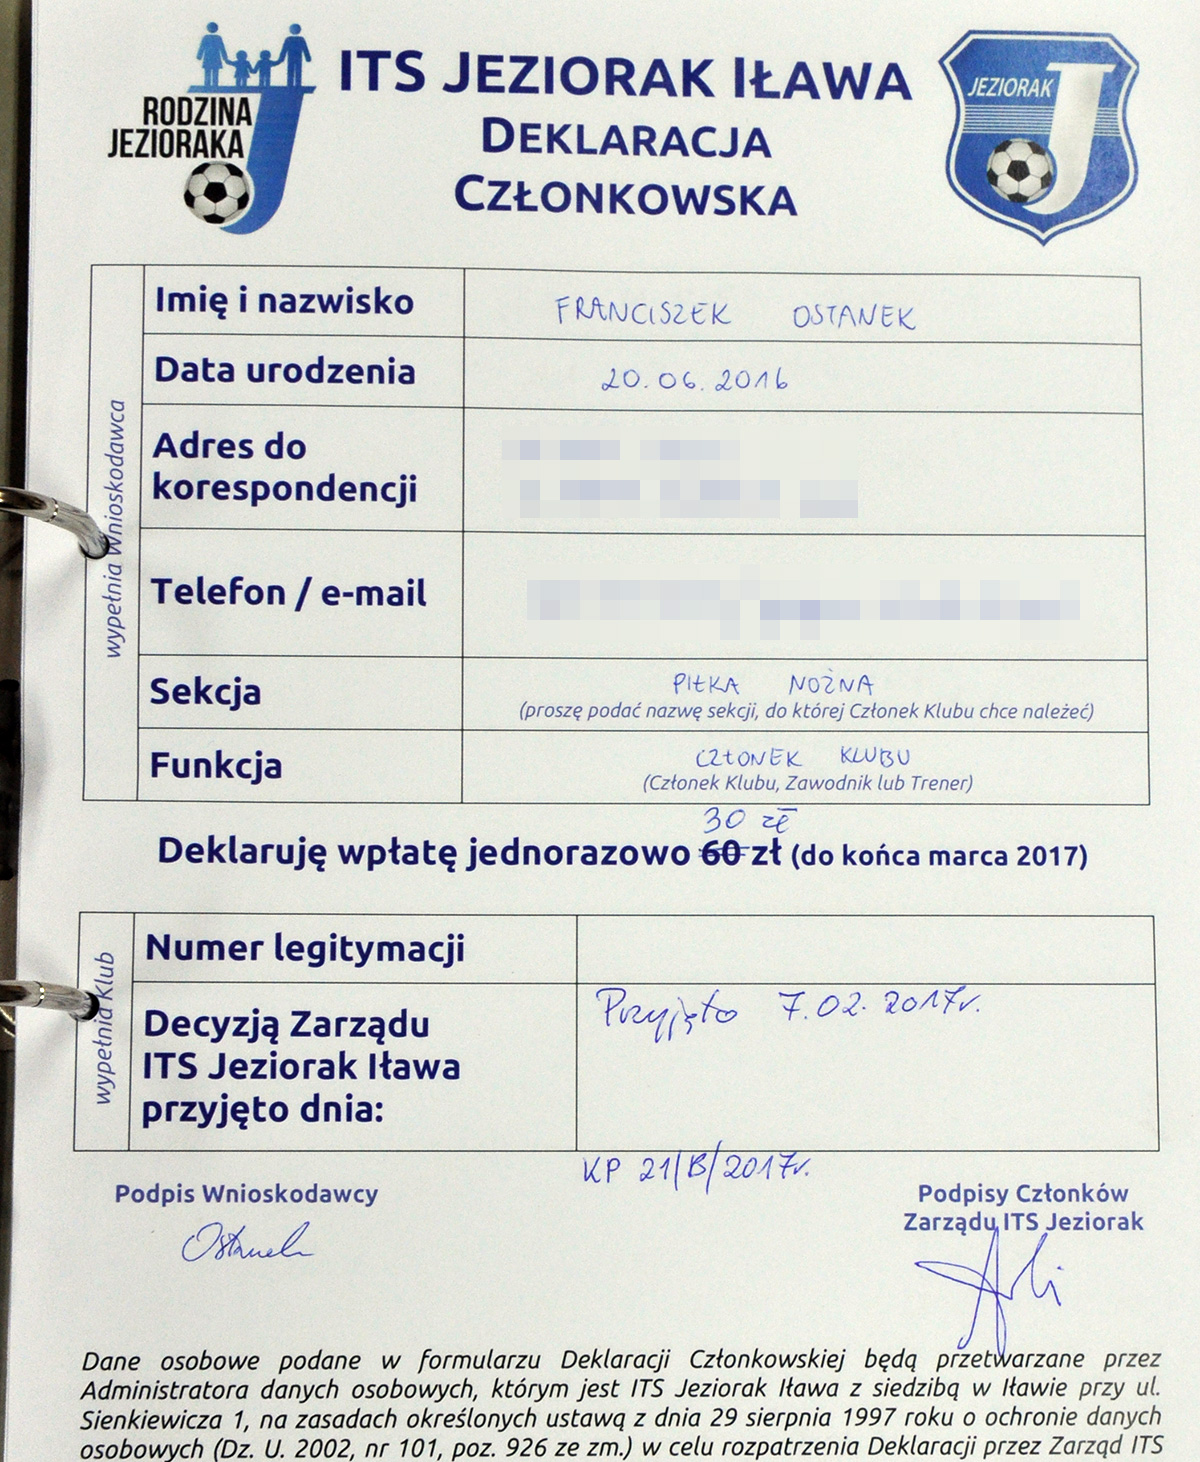 RODZINA
JEZIORAKA
ITS JEZIORAK IŁAWA
DEKLARACJA
CZŁONKOWSKA
JEZIORAK
wypełnia Wnioskodawca
Imię i nazwisko FRANCISZEK OSTANEK
Data urodzenia 20.06.2016
Adres do
korespondencji
Telefon / e-mail
Sekcja PIŁKA NOŻNA
(proszę podać nazwę sekcji, do której Członek Klubu chce należeć)
Funkcja CZŁONEK KLUBU
(Członek Klubu, Zawodnik lub Trener)
30 zł
Deklaruję wpłatę jednorazowo 60 zł (do końca marca 2017)
wypełnia Klub
Numer legitymacji
Decyzją Zarządu
ITS Jeziorak Iława
przyjęto dnia:
Przyjęto 7.02.2017r.
KP 21/B/2017r.
Podpis Wnioskodawcy
Ostanek
Podpisy Członków
Zarządu ITS Jeziorak
Dane osobowe podane w formularzu Deklaracji Członkowskiej będą przetwarzane przez
Administratora danych osobowych, którym jest ITS Jeziorak Iława z siedzibą w Iławie przy ul.
Sienkiewicza 1, na zasadach określonych ustawą z dnia 29 sierpnia 1997 roku o ochronie danych
osobowych (Dz. U. 2002, nr 101, poz. 926 ze zm.) w celu rozpatrzenia Deklaracji przez Zarząd ITS